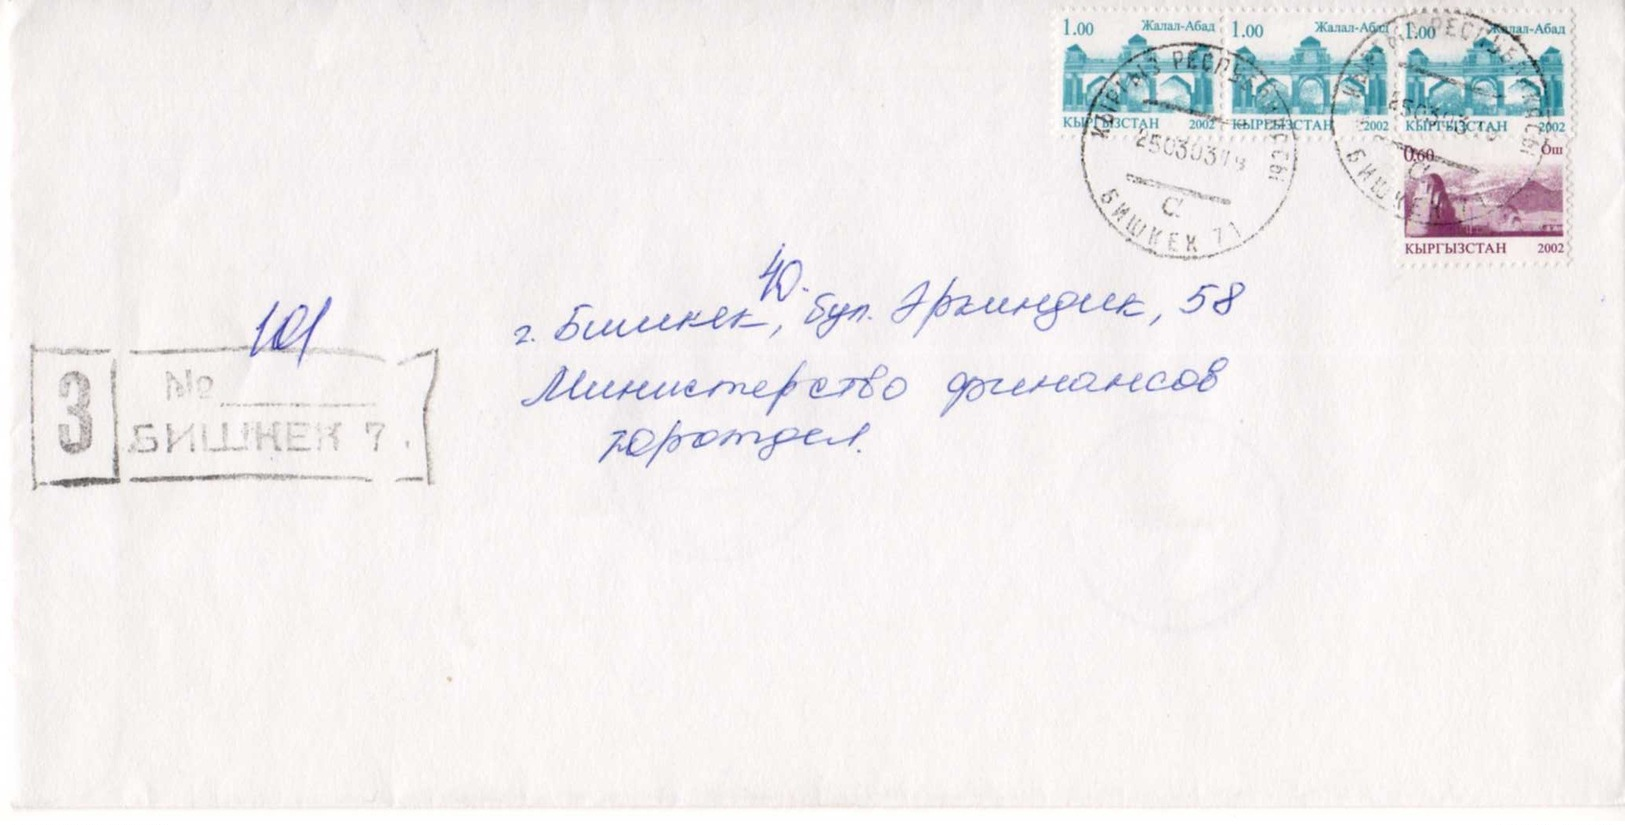 1.00 Жалал-Абад
КЫРГЫЗСТАН 2002
1.00 Жалал-Абад
КЫРГЫЗСТАН 2002
1.00 Жалал-Абад
КЫРГЫЗСТАН 2002
0,60 Ош
КЫРГЫЗСТАН 2002
КЫРГЫЗ РЕСПУБЛИКАСЫ
25030318
С
БИШКЕК 71
КЫРГЫЗ РЕСПУБЛИКАСЫ
БИШКЕК
40.
г. Бишкек, бул. Эркиндик, 58
Министерство финансов
юротдел.
101
З
№
БИШКЕК 7.